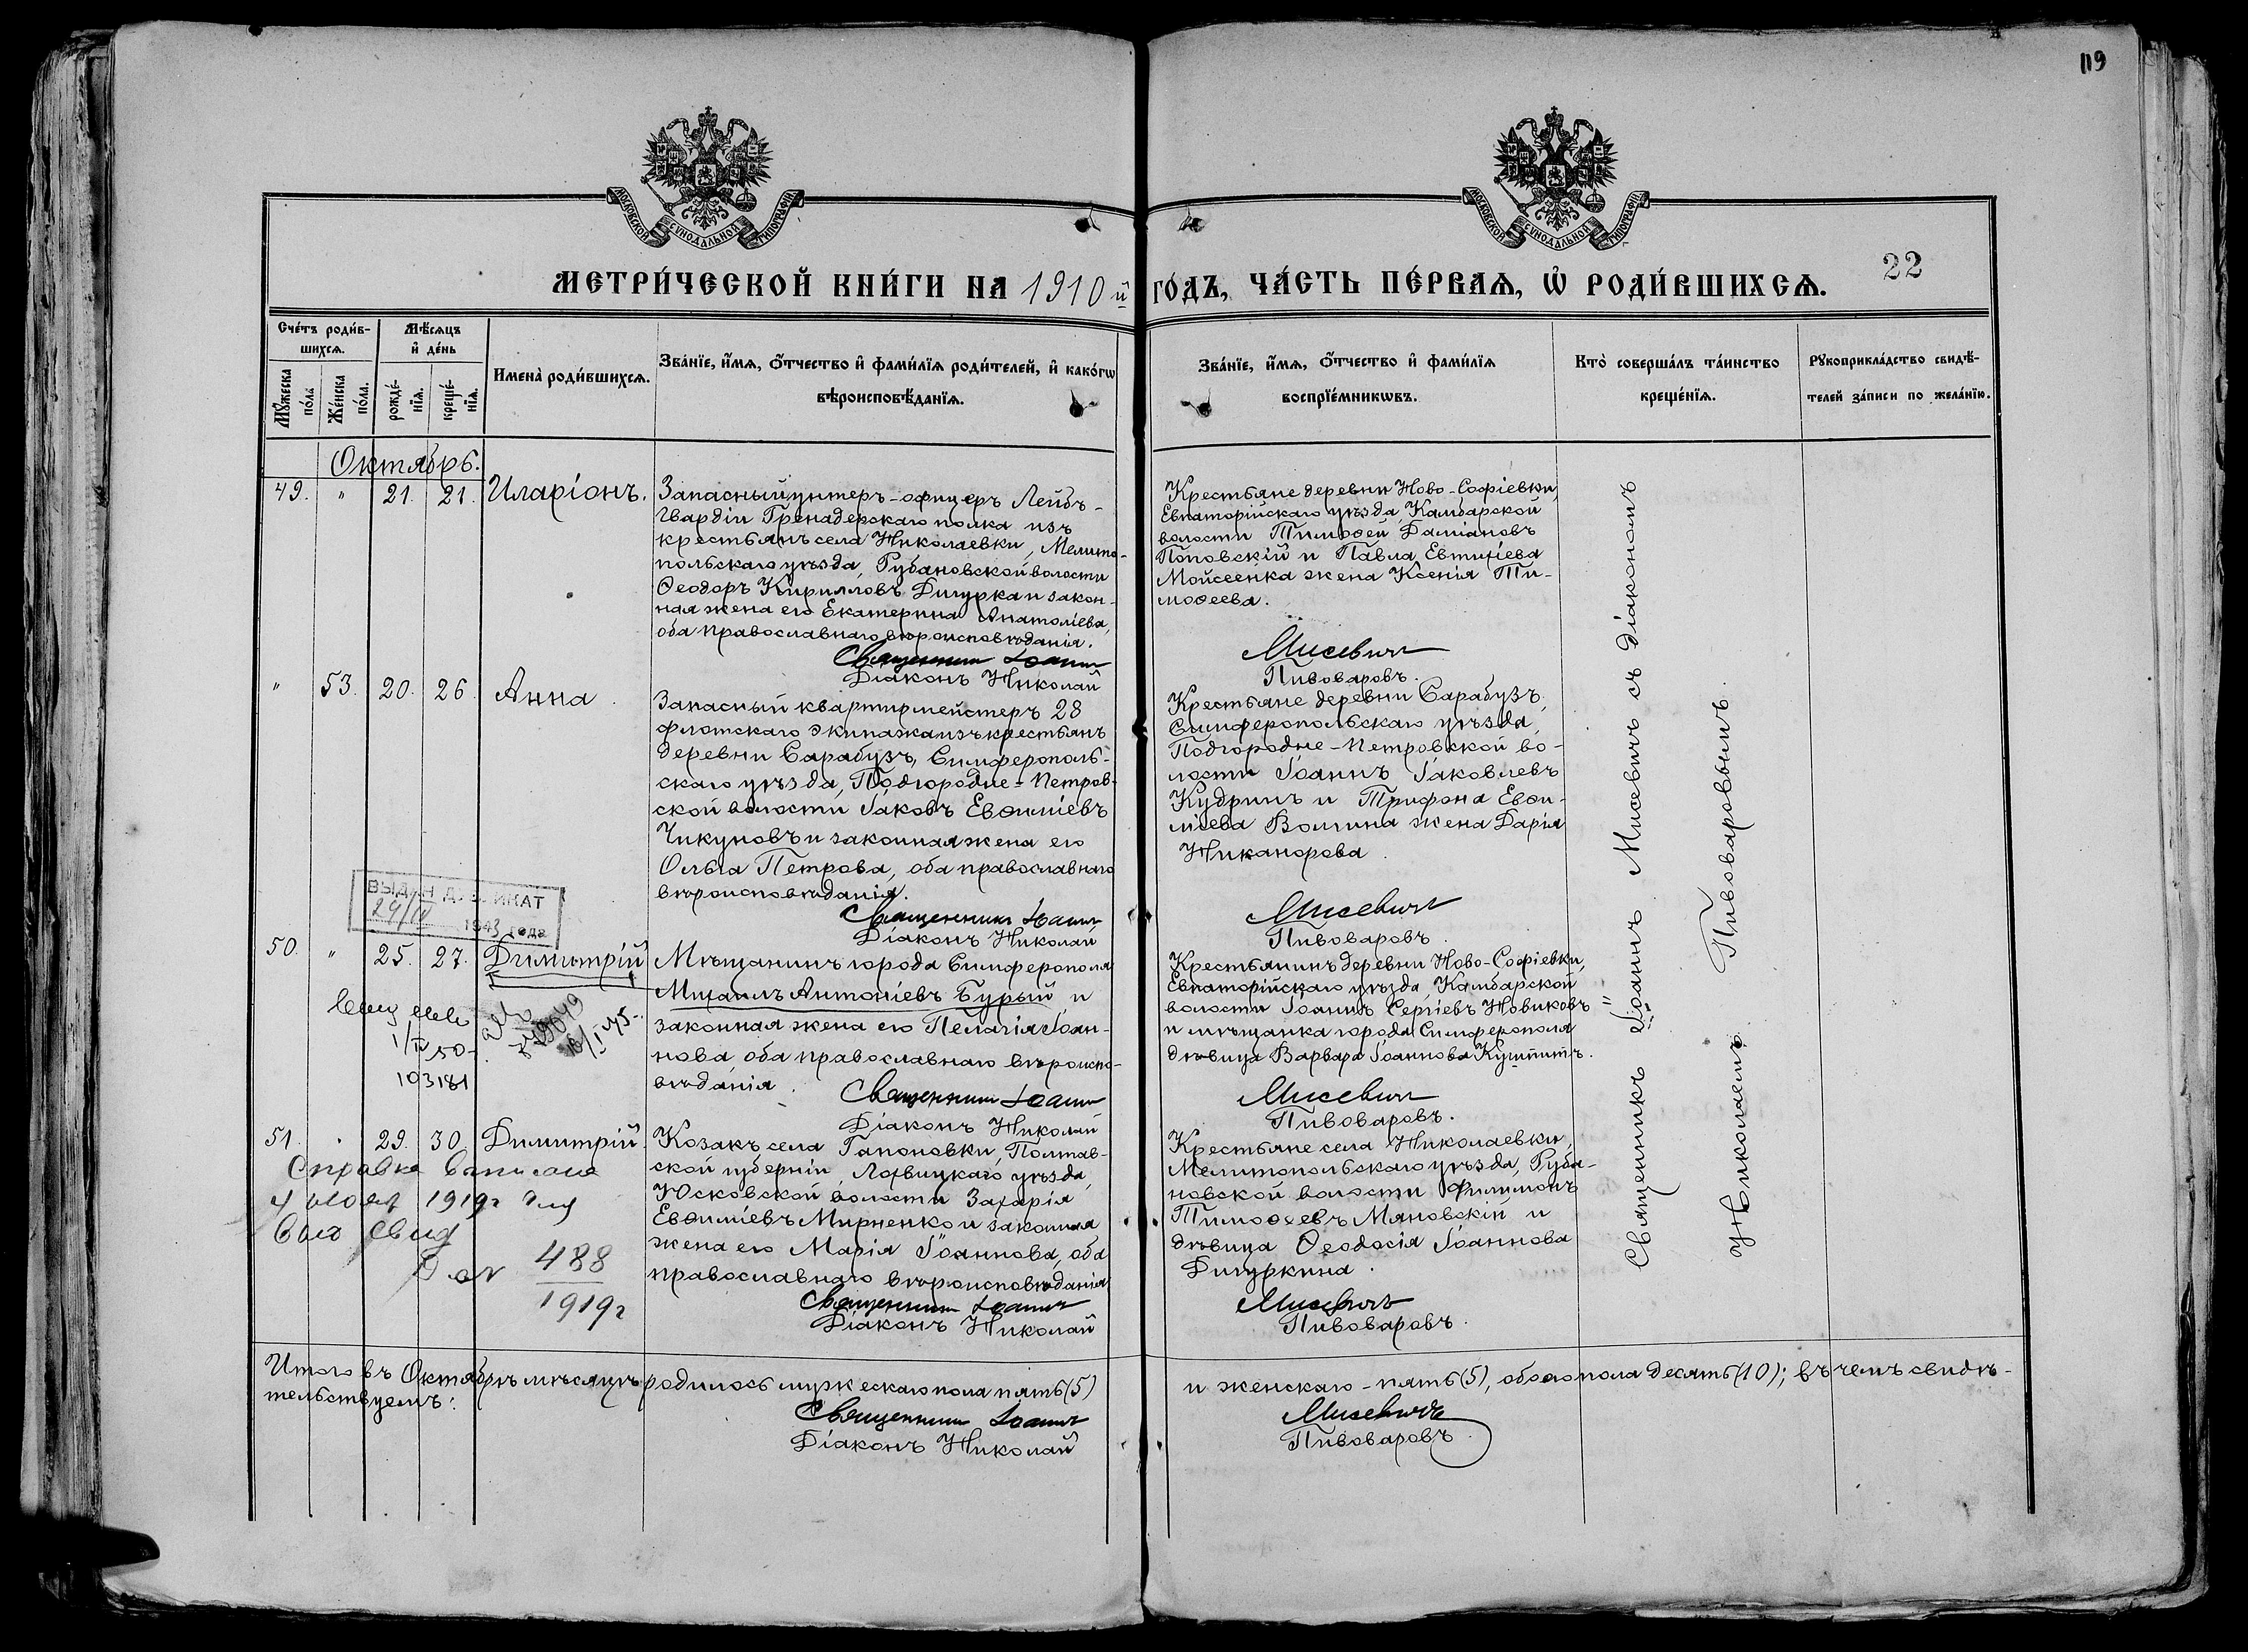 119
МОСКОВСКОЙ СѴНОДАЛЬНОЙ ТИПОГРАФІИ
МОСКОВСКОЙ СѴНОДАЛЬНОЙ ТИПОГРАФІИ
22
МЕТРИ́ЧЕСКОЙ КНИ́ГИ НА 1910 й
ГО́ДЪ, ЧА́СТЬ ПЕ́РВАѦ, Ѡ҆ РОДИ́ВШИХСѦ.
Сче́тъ роди́в-
шихсѧ.
Мꙋ́жеска по́ла
Же́нска по́ла.
Мѣ́сѧцъ
и҆ де́нь
рожде́-
нїѧ.
креще́-
нїѧ.
Имена̀ роди́вшихсѧ.
Зва́нїе, и҆́мѧ, ѻ҆́тчество и҆ фами́лїѧ роди́телей, и҆ како́гѡ
вѣроисповѣ́данїѧ.
Зва́нїе, и҆́мѧ, ѻ҆́тчество и҆ фами́лїѧ
воспрїе́мникѡвъ.
Кто̀ соверша́лъ та́инство
креще́нїѧ.
Рꙋкоприкла́дство свидѣ́-
телей за́писи по жела́нїю.
Октябрь.
49. " 21. 21. Иларіонъ.
Запасный унтеръ-офицеръ Лейбъ-
Гвардіи Гренадерскаго полка изъ
крестьянъ села Николаевки, Мелито-
польскаго уѣзда, Рубановской волости
Ѳеодоръ Кирилловъ Дигурка и закон-
ная жена его Екатерина Анатоліева,
оба православнаго вѣроисповѣданія.
Священникъ Іоаннъ
Діаконъ Николай
Крестьяне деревни Ново-Софіевки,
Евпаторійскаго уѣзда, Камбарской
волости Тимоѳей Даміановъ
Поповскій и Павла Евтихіева
Мойсеенка жена Ксенія Ти-
моѳеева.
Мисевичъ
Пивоваровъ.
" 53. 20. 26. Анна.
Запасный квартирмейстеръ 28
флотскаго экипажа изъ крестьянъ
деревни Сарабузъ, Симферополь-
скаго уѣзда, Подгородне-Петров-
ской волости Іаковъ Евѳиміевъ
Чикуновъ и законная жена его
Ольга Петрова, оба православнаго
вѣроисповѣданія.
Священникъ Іоаннъ
Діаконъ Николай
Крестьяне деревни Сарабузъ,
Симферопольскаго уѣзда,
Подгородне-Петровской во-
лости Іоаннъ Іаковлевъ
Кудринъ и Трифона Евѳи-
міева Волгина жена Дарія
Никанорова.
Мисевичъ
Пивоваровъ.
ВЫДАН ДУБЛИКАТ
1943 года
50. " 25. 27. Димитрій
Мѣщанинъ города Симферополя
Михаилъ Антоніевъ Бурый и
законная жена его Пелагія Іоан-
нова, оба православнаго вѣроиспо-
вѣданія.
Священникъ Іоаннъ
Діаконъ Николай
Крестьянинъ деревни Ново-Софіевки,
Евпаторійскаго уѣзда, Камбарской
волости Іоаннъ Сергіевъ Новиковъ
и мѣщанка города Симферополя
дѣвица Варвара Іоаннова
Мисевичъ
Пивоваровъ.
1/IV 50
103181
51. " 29. 30. Димитрій
Козакъ села Гапоновки, Полтав-
ской губерніи, Лохвицкаго уѣзда,
Юсковской волости Захарія
Евѳиміевъ Мирненко и законная
жена его Марія Іоаннова, оба
православнаго вѣроисповѣданія
Священникъ Іоаннъ
Діаконъ Николай
Крестьяне села Николаевки,
Мелитопольскаго уѣзда, Руба-
новской волости Филимонъ
Тимоѳеевъ Мяновскій и
дѣвица Ѳеодосія Іоаннова
Дигуркина.
Мисевичъ
Пивоваровъ.
Справка
1919г
488
1919г
Священникъ Іоаннъ Мисевичъ съ діакономъ
Николаемъ Пивоваровымъ.
Итого въ Октябрѣ мѣсяцѣ родилось мужескаго пола пять (5) и женскаго - пять (5), обоего пола десять (10); въ чемъ свидѣ-
тельствуемъ:
Священникъ Іоаннъ Мисевичъ
Діаконъ Николай Пивоваровъ.